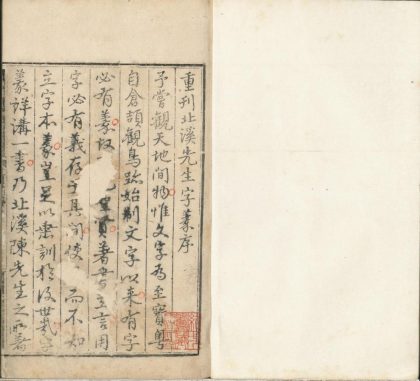 重刊北溪先生字義序
予嘗觀天地間物惟文字為至寶粤
自倉頡觀鳥跡始制文字以來有字
必有義 聖賢著書立言用
字必有義存乎其間使 而不知
立字本義豈足以垂訓於後世哉字
義詳講一書乃北溪陳先生之所著